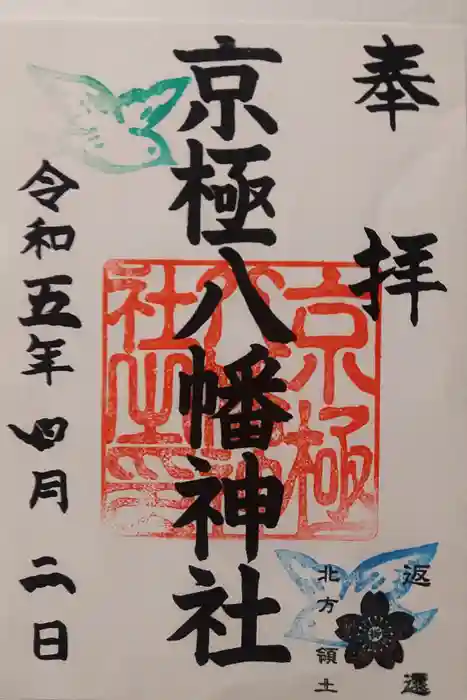 奉拝
京極八幡神社
令和五年四月二日
京極八幡神社之印
北方領土
返還